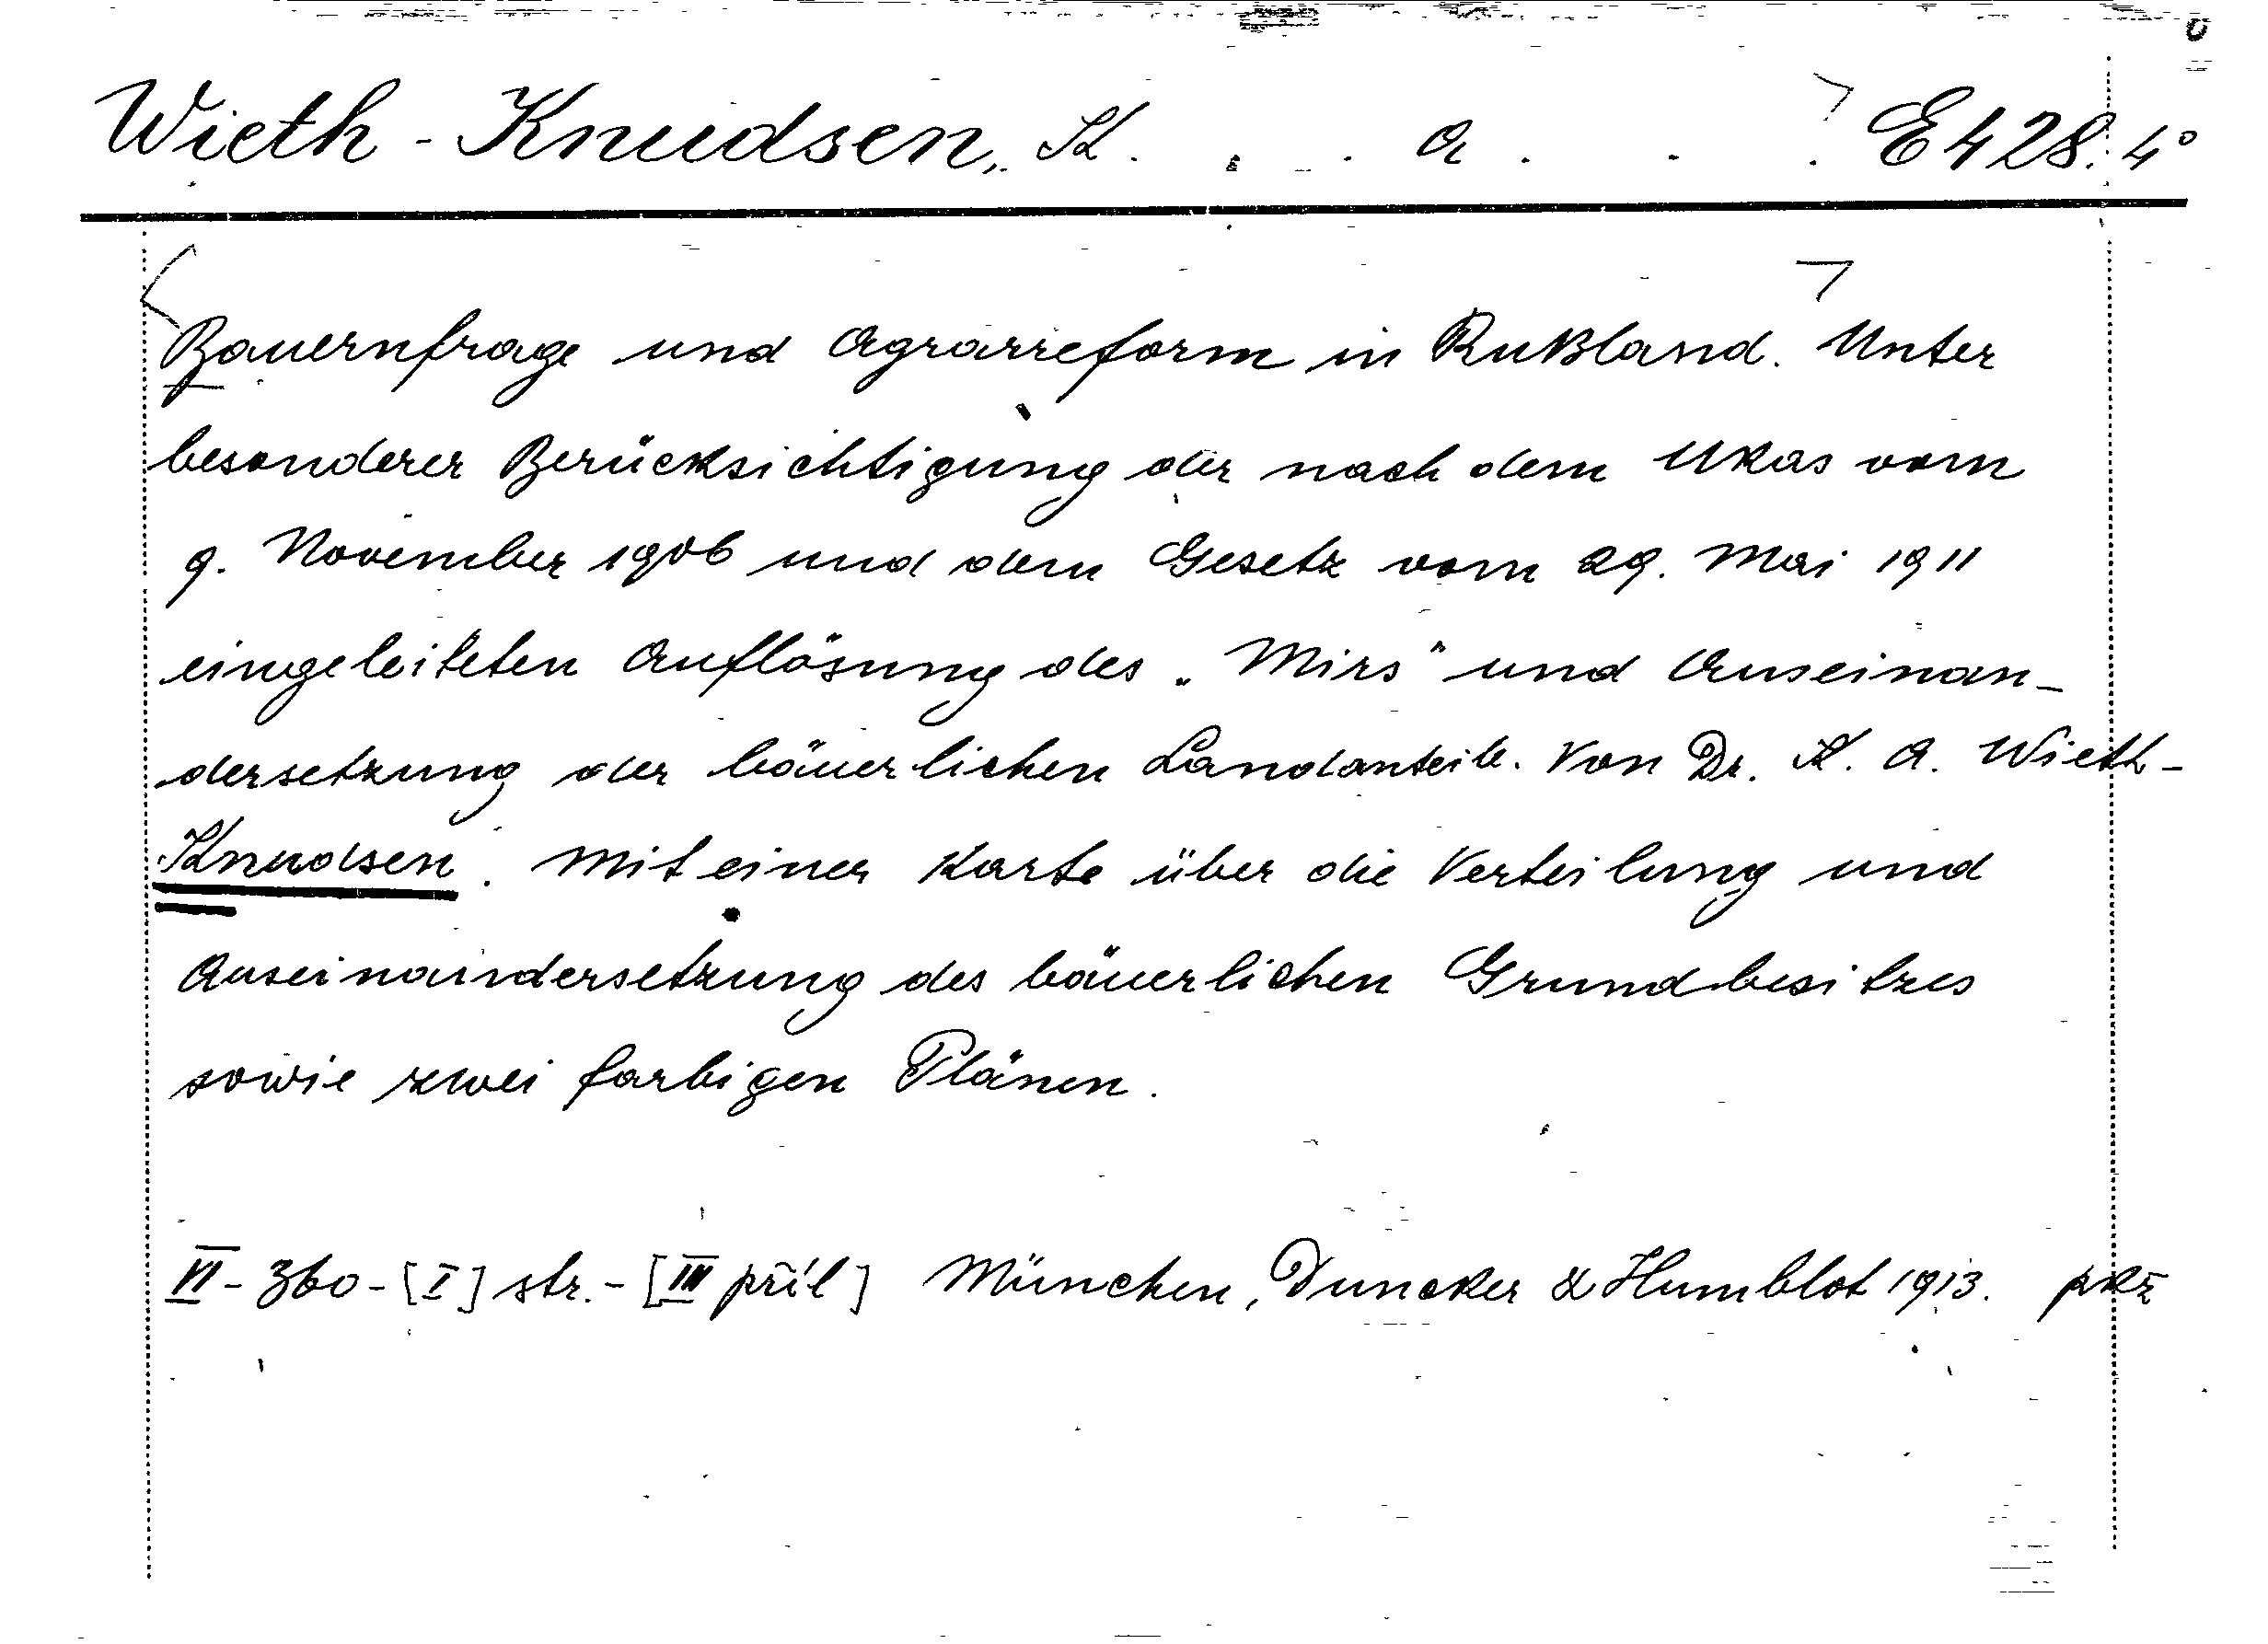 Wieth-Knudsen, K. A. E 428. 4°
Bauernfrage und Agrarreform in Rußland. Unter
besonderer Berücksichtigung der nach dem Ukas vom
9. November 1906 und dem Gesetz vom 29. Mai 1911
eingeleiteten Auflösung des „Mirs" und Auseinan-
dersetzung der bäuerlichen Landanteile. Von Dr. K. A. Wieth-
Knudsen. Mit einer Karte über die Verteilung und
Auseinandersetzung des bäuerlichen Grundbesitzes
sowie zwei farbigen Plänen.
VI - 360 - [I] str. - [III příl] München, Duncker & Humblot 1913.